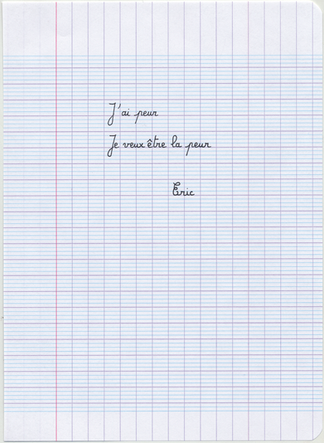 J'ai peur
Je veux être la peur
Eric